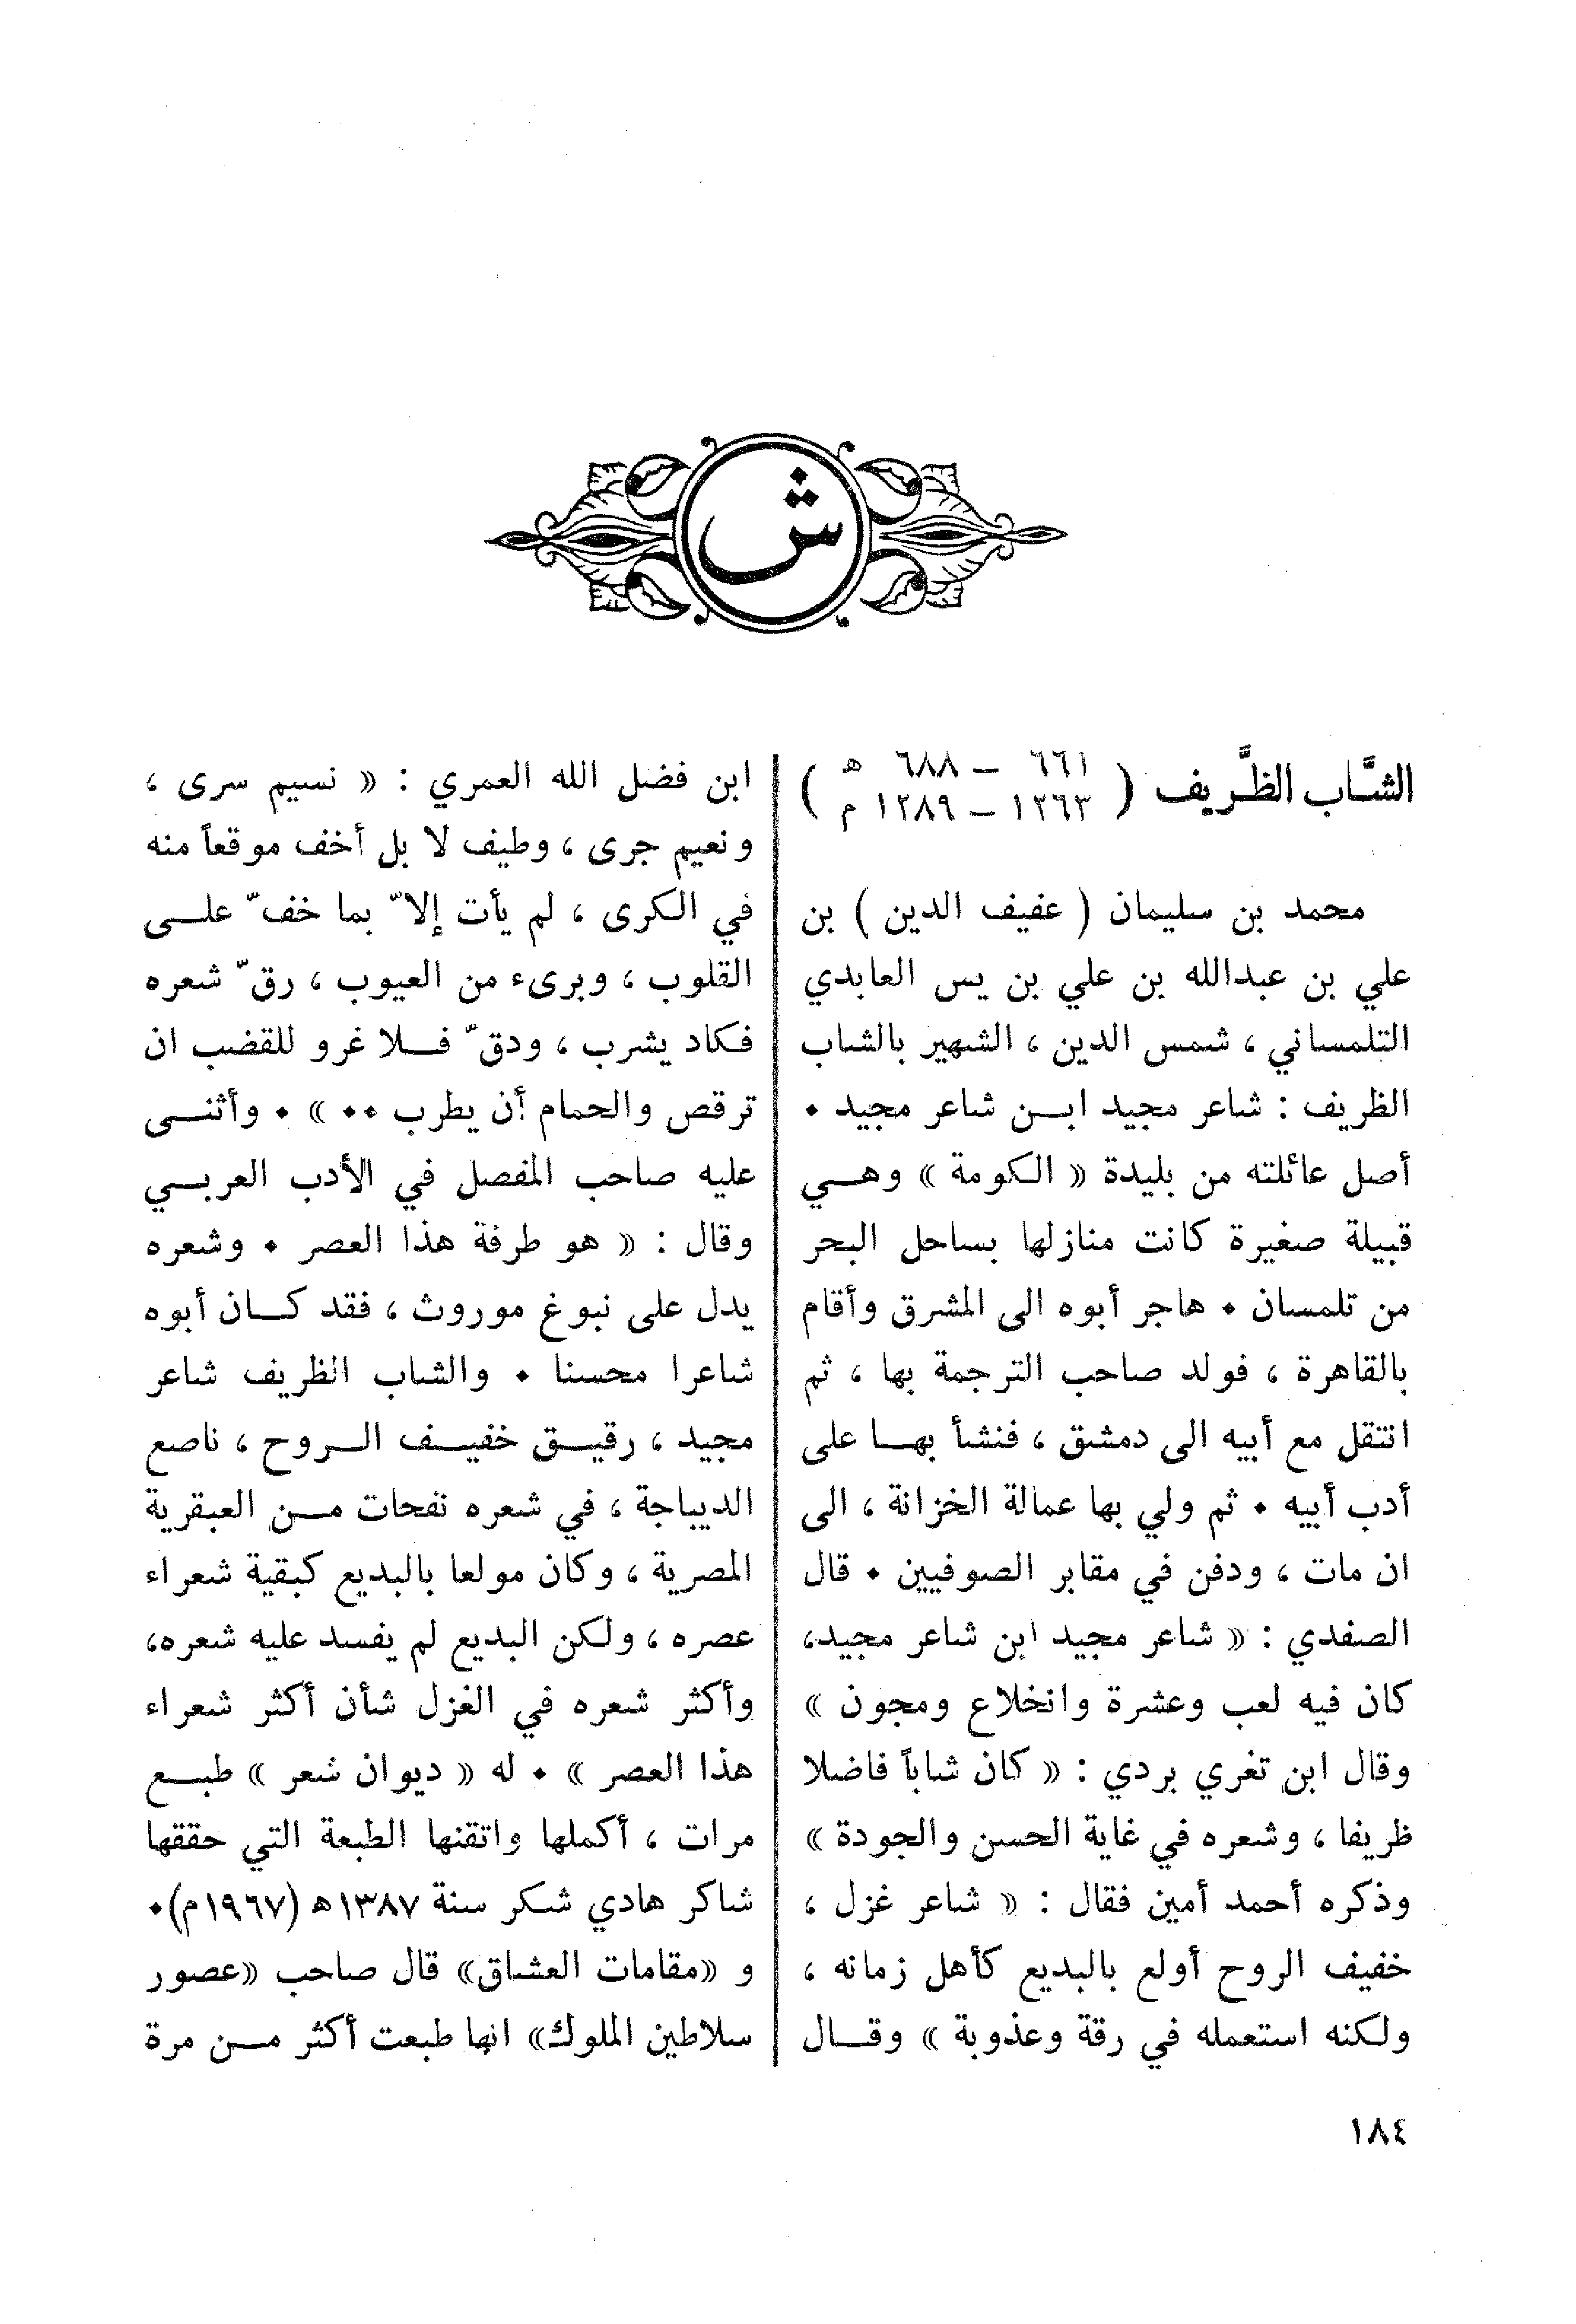 ش
الشَّاب الظَّريف ( ٦٦١ – ٦٨٨ هـ
١٢٦٣ – ١٢٨٩ م )
محمد بن سليمان ( عفيف الدين ) بن
علي بن عبدالله بن علي بن يس العابدي
التلمساني ، شمس الدين ، الشهير بالشاب
الظريف : شاعر مجيد ابن شاعر مجيد .
أصل عائلته من بليدة « الكومة » وهي
قبيلة صغيرة كانت منازلها بساحل البحر
من تلمسان . هاجر أبوه الى المشرق وأقام
بالقاهرة ، فولد صاحب الترجمة بها ، ثم
انتقل مع أبيه الى دمشق ، فنشأ بها على
أدب أبيه . ثم ولي بها عمالة الخزانة ، الى
ان مات ، ودفن في مقابر الصوفيين . قال
الصفدي : « شاعر مجيد ابن شاعر مجيد،
كان فيه لعب وعشرة وانخلاع ومجون »
وقال ابن تغري بردي : « كان شاباً فاضلا
ظريفا ، وشعره في غاية الحسن والجودة »
وذكره أحمد أمين فقال : « شاعر غزل ،
خفيف الروح أولع بالبديع كأهل زمانه ،
ولكنه استعمله في رقة وعذوبة » وقال
ابن فضل الله العمري : « نسيم سرى ،
ونعيم جرى ، وطيف لا بل أخف موقعاً منه
في الكرى ، لم يأت إلاّ بما خفّ على
القلوب ، وبرىء من العيوب ، رقّ شعره
فكاد يشرب ، ودقّ فلا غرو للقضب ان
ترقص والحمام أن يطرب .. » . وأثنى
عليه صاحب المفصل في الأدب العربي
وقال : « هو طرفة هذا العصر . وشعره
يدل على نبوغ موروث ، فقد كان أبوه
شاعرا محسنا . والشاب الظريف شاعر
مجيد ، رقيق خفيف الروح ، ناصع
الديباجة ، في شعره نفحات من العبقرية
المصرية ، وكان مولعا بالبديع كبقية شعراء
عصره ، ولكن البديع لم يفسد عليه شعره،
وأكثر شعره في الغزل شأن أكثر شعراء
هذا العصر » . له « ديوان شعر » طبع
مرات ، أكملها واتقنها الطبعة التي حققها
شاكر هادي شكر سنة ١٣٨٧هـ (١٩٦٧م).
و «مقامات العشاق» قال صاحب «عصور
سلاطين الملوك» انها طبعت أكثر من مرة
١٨٤